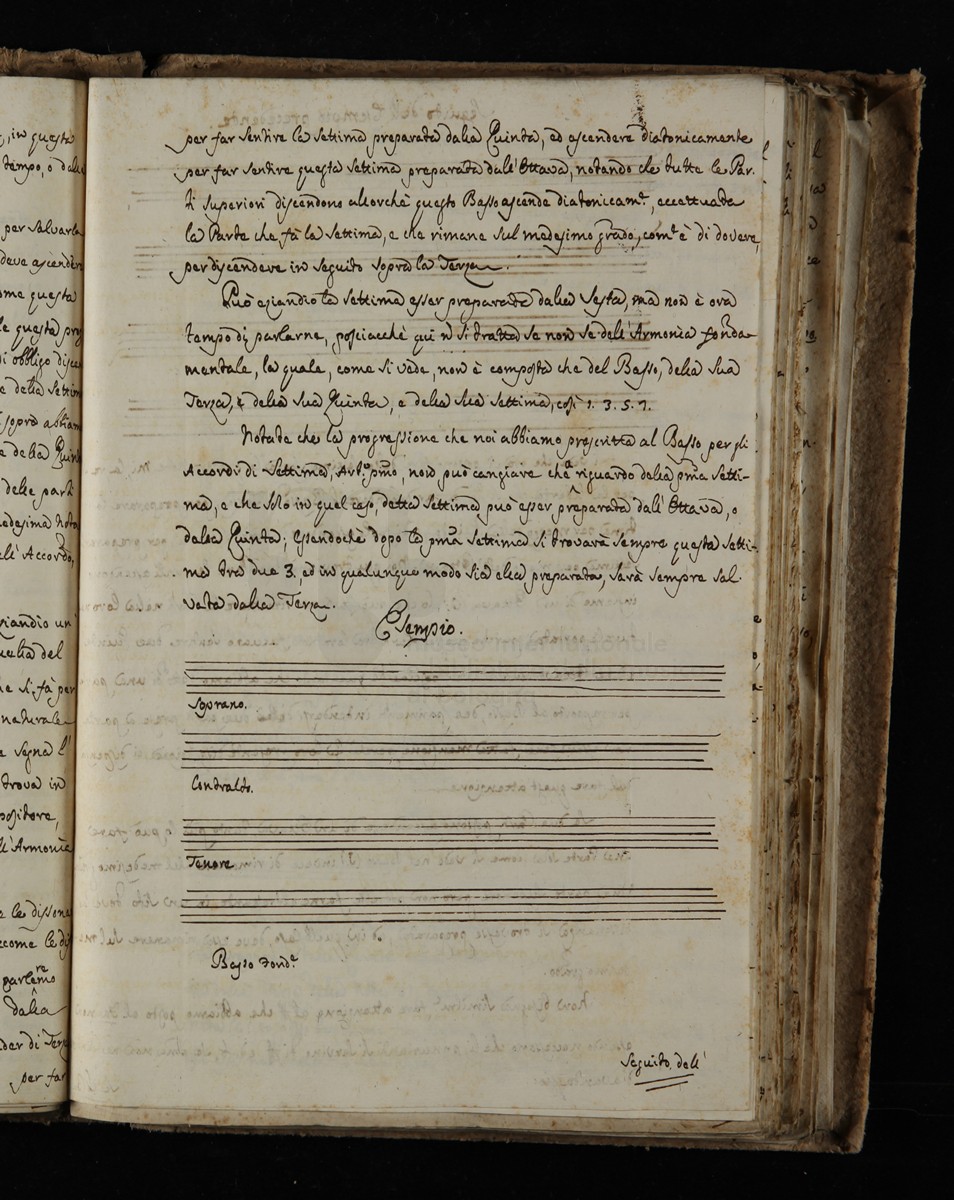 per far sentire la settima preparata dalla Quinta, ed ascendere diatonicamente
per far sentire questa settima preparata dall'Ottava, notando che tutte le Par.
ti superiori discendono allorchè questo Basso ascende diatonicam.e, eccettuata
la Parte che fà la settima, e che rimane sul medesimo grado, com'è di dovere,
per discendere in seguito sopra la Terza.
Può eziandio la settima esser preparata dalla sesta, ma non è ora
tempo di parlarne, posciacchè qui ñ si tratta se non se dell'Armonìa fonda
mentale, la quale, come si vede, non è composta che del Basso, della sua
Terza, e della sua Quinta, e della sua settima, così 1. 3. 5. 7.
Notate che la progressione che noi abbiamo prescritta al Basso per gli
Accordi di settima, Art.o p̃mo, non può cangiare che a riguardo della p̃ma setti-
ma, e che solo in quel caso, detta settima può esser preparata dall'Ottava, o
dalla Quinta; essendochè dopo la p̃ma settima si troverà sempre questa setti-
ma tra due 3. ed in qualunque modo sia ella preparata, sarà sempre sal.
vata dalla Terza.
Esempio.
Soprano.
Contralto.
Tenore
Basso Fond.e
Seguito dell'
per salvarla
deve ascender
ome questa
della settim
sopra abbiam
della Quin
delle parti
edesima nota
ell'Accordo,
ziandio un
uella del
e si fà per
naturale
segna l'
trova in
ll'Armonìa
le disson
dalla
der di Terz
per far